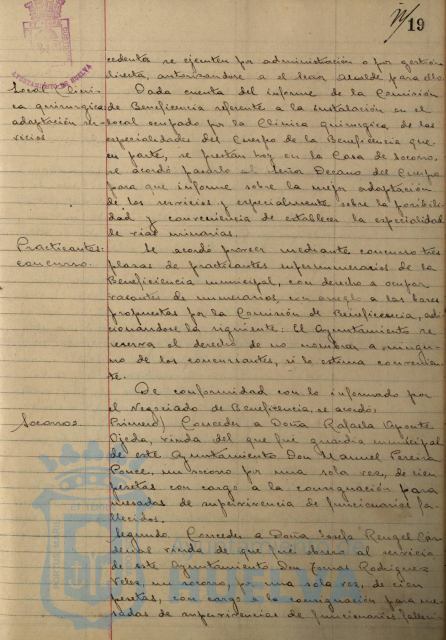 19
AYUNTAMIENTO DE HUELVA
cedentes se ejecuten por administración o por gestión
directa, autorizandose a el Señor Alcalde para ello.
Local Clini-
ca quirurgica
adaptación ser-
vicios
Dada cuenta del informe de la Comisión
de Beneficencia referente a la instalación en el
local ocupado por la Clinica quirurgica, de las
especialidades del Cuerpo de la Beneficencia que
en parte, se prestan hoy en la Casa de Socorro,
se acordó pasarlo al Señor Decano del Cuerpo
para que informe sobre la mejor adaptación
de los servicios y especialmente sobre la posibili-
dad y conveniencia de establecer la especialidad
de vias urinarias.
Practicantes:
concurso.
Se acordó proveer mediante concurso tres
plazas de practicantes supernumerarios de la
Beneficiencia municipal, con derecho a ocupar
vacantes de numerarios, con arreglo a las bases
propuestas por la Comisión de Beneficencia, adi-
cionandose la siguiente: El Ayuntamiento se
reserva el derecho de no nombrar a ningu-
no de los concursantes, si lo estima convenien-
te.
De conformidad con lo informado por
el Negociado de Beneficencia, se acordó:
Socorros.
Primero) Conceder a Doña Rafaela
Ojeda, viuda del que fué guardia municipal
de este Ayuntamiento Don Manuel Pereira
Ponce, un socorro por una sola vez, de cien
pesetas con cargo a la consignación para
mesadas de supervivencia de funcionarios fa-
llecidos.
Segundo. Conceder a Doña Josefa Rengel Car-
denal viuda de que fué obrero al servicio
de este Ayuntamiento Don Tomas Rodriguez
Velez, un socorro, por una sola vez, de cien
pesetas, con cargo a la consignación para me-
sadas de supervivencias de funcionarios falleci-